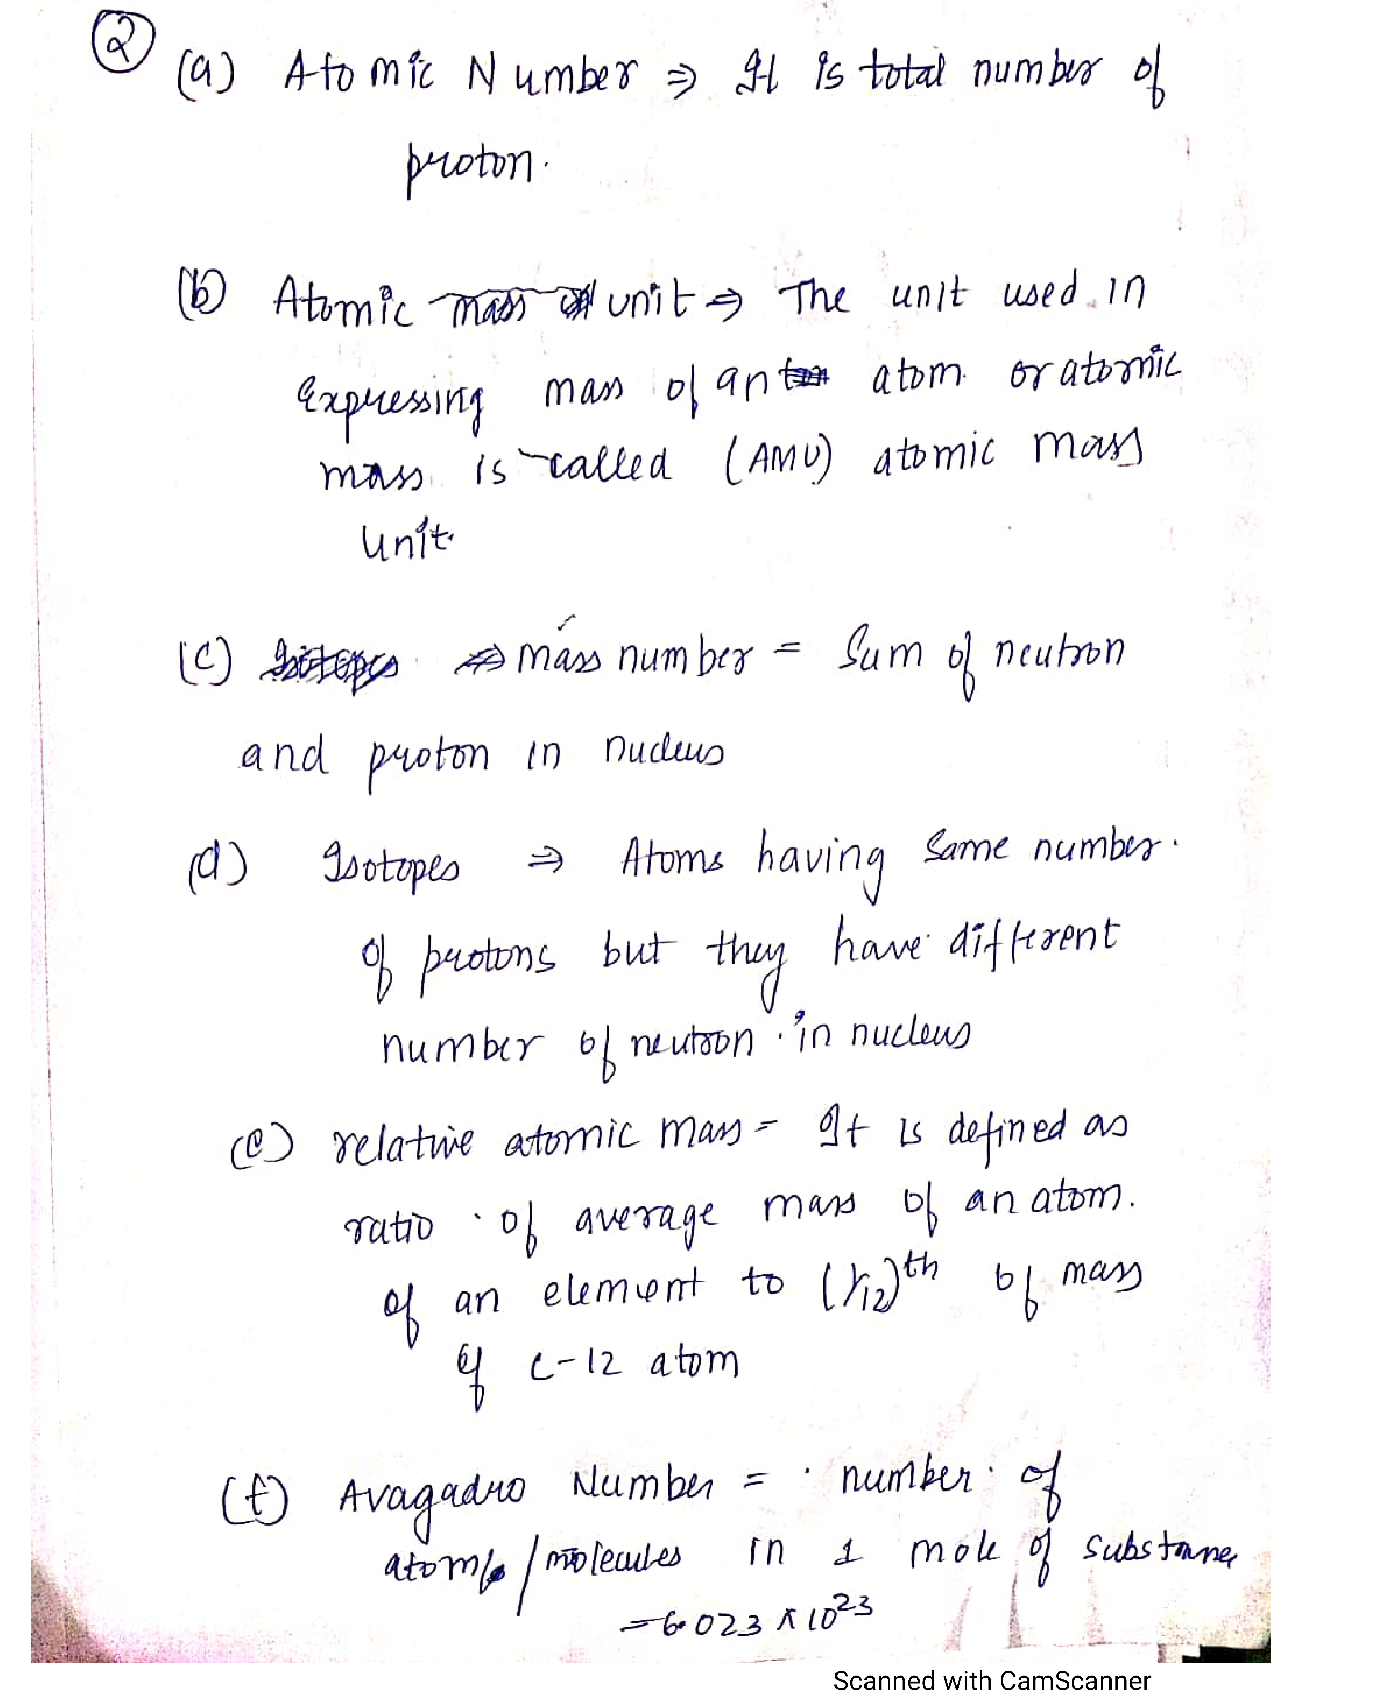 ②
(a) Atomic Number ⇒ It is total number of
proton.
(b) Atomic mass unit ⇒ The unit used in
Expressing mass of an atom or atomic
mass is called (AMU) atomic mass
unit.
(c) Isotopes ⇒ mass number = Sum of neutron
and proton in nucleus
(d) Isotopes ⇒ Atoms having same number
of protons but they have different
number of neutron in nucleus
(e) relative atomic mass = It is defined as
ratio of average mass of an atom
of an element to (1/12)th of mass
of C-12 atom
(f) Avagadro Number = number of
atoms/molecules in 1 mole of substance
= 6.023 × 10²³
Scanned with CamScanner